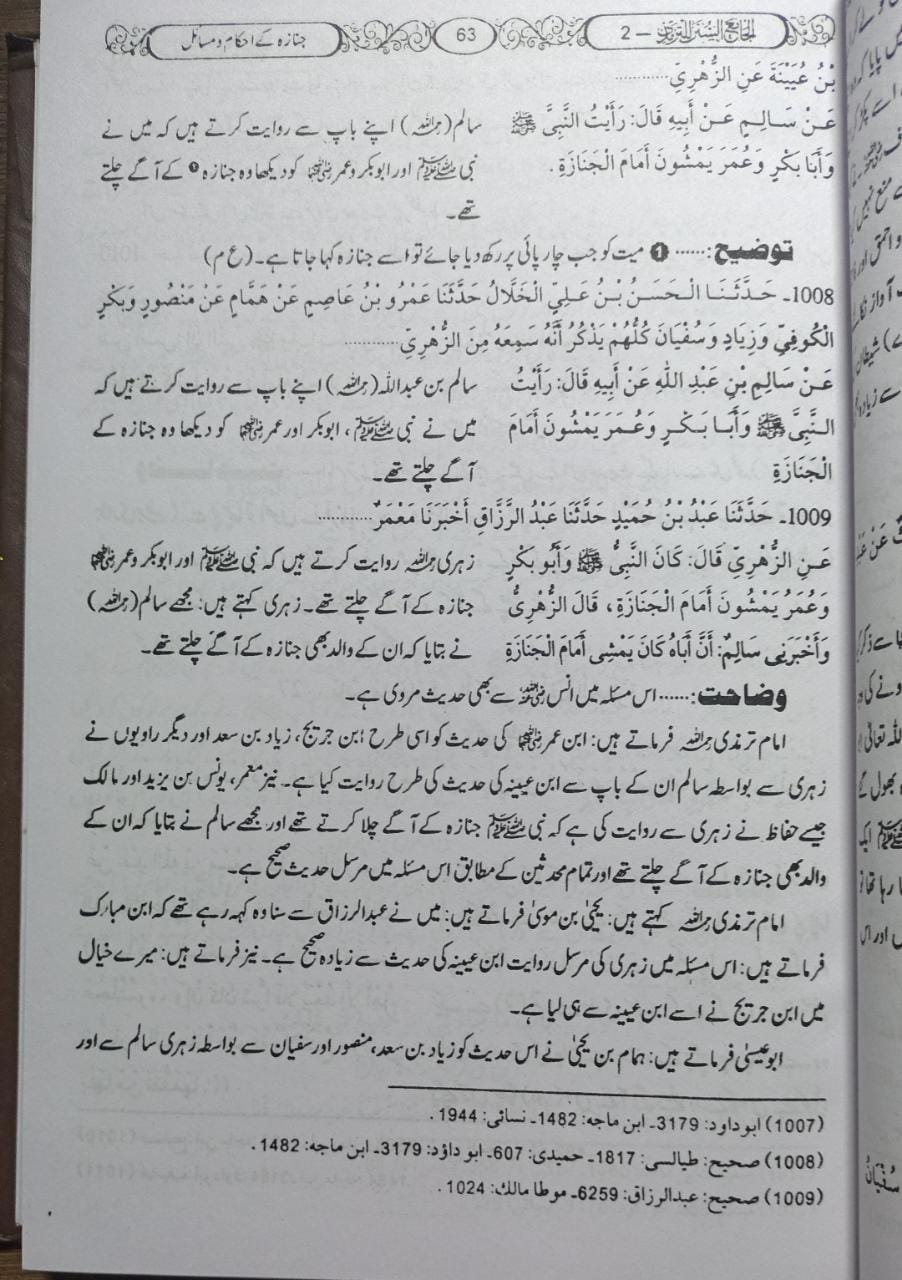 الجامع السنن الترمذی — 2
63
جنازہ کے احکام ومسائل
بْنُ عُيَيْنَةَ عَنِ الزُّهْرِيِّ............
عَنْ سَالِمٍ عَنْ أَبِيهِ قَالَ: رَأَيْتُ النَّبِيَّ ﷺ
وَأَبَا بَكْرٍ وَعُمَرَ يَمْشُونَ أَمَامَ الْجَنَازَةِ.
سالم (رحمہ اللہ) اپنے باپ سے روایت کرتے ہیں کہ میں نے
نبی ﷺ اور ابوبکر وعمر رضی اللہ عنہما کو دیکھا وہ جنازہ ❶ کے آگے چلتے
تھے۔
توضیح:...... ❶ میت کو جب چارپائی پر رکھ دیا جائے تو اسے جنازہ کہا جاتا ہے۔ (ع م)
1008۔ حَدَّثَنَا الْحَسَنُ بْنُ عَلِيٍّ الْخَلَّالُ حَدَّثَنَا عَمْرُو بْنُ عَاصِمٍ عَنْ هَمَّامٍ عَنْ مَنْصُورٍ وَبَكْرٍ
الْكُوفِيِّ وَزِيَادٍ وَسُفْيَانَ كُلُّهُمْ يَذْكُرُ أَنَّهُ سَمِعَهُ مِنَ الزُّهْرِيِّ............
عَنْ سَالِمِ بْنِ عَبْدِ اللّٰهِ عَنْ أَبِيهِ قَالَ: رَأَيْتُ
النَّبِيَّ ﷺ وَأَبَا بَكْرٍ وَعُمَرَ يَمْشُونَ أَمَامَ
الْجَنَازَةِ
سالم بن عبداللہ (رحمہ اللہ) اپنے باپ سے روایت کرتے ہیں کہ
میں نے نبی ﷺ، ابوبکر اور عمر رضی اللہ عنہما کو دیکھا وہ جنازہ کے
آگے چلتے تھے۔
1009۔ حَدَّثَنَا عَبْدُ بْنُ حُمَيْدٍ حَدَّثَنَا عَبْدُ الرَّزَّاقِ أَخْبَرَنَا مَعْمَرٌ............
عَنِ الزُّهْرِيِّ قَالَ: كَانَ النَّبِيُّ ﷺ وَأَبُو بَكْرٍ
وَعُمَرُ يَمْشُونَ أَمَامَ الْجَنَازَةِ، قَالَ الزُّهْرِيُّ
وَأَخْبَرَنِي سَالِمٌ: أَنَّ أَبَاهُ كَانَ يَمْشِي أَمَامَ الْجَنَازَةِ
زہری رحمہ اللہ روایت کرتے ہیں کہ نبی ﷺ اور ابوبکر وعمر رضی اللہ عنہما
جنازہ کے آگے چلتے تھے۔ زہری کہتے ہیں: مجھے سالم (رحمہ اللہ)
نے بتایا کہ ان کے والد بھی جنازہ کے آگے چلتے تھے۔
وضاحت:...... اس مسئلہ میں انس رضی اللہ عنہ سے بھی حدیث مروی ہے۔
امام ترمذی رحمہ اللہ فرماتے ہیں: ابن عمر رضی اللہ عنہما کی حدیث کو اسی طرح ابن جریج، زیاد بن سعد اور دیگر راویوں نے
زہری سے بواسطہ سالم ان کے باپ سے ابن عیینہ کی حدیث کی طرح روایت کیا ہے۔ نیز معمر، یونس بن یزید اور مالک
جیسے حفاظ نے زہری سے روایت کی ہے کہ نبی ﷺ جنازہ کے آگے چلا کرتے تھے اور مجھے سالم نے بتایا کہ ان کے
والد بھی جنازہ کے آگے چلتے تھے اور تمام محدثین کے مطابق اس مسئلہ میں مرسل حدیث صحیح ہے۔
امام ترمذی رحمہ اللہ کہتے ہیں: یحیٰی بن موسیٰ فرماتے ہیں: میں نے عبدالرزاق سے سنا وہ کہہ رہے تھے کہ ابن مبارک
فرماتے ہیں: اس مسئلہ میں زہری کی مرسل روایت ابن عیینہ کی حدیث سے زیادہ صحیح ہے۔ نیز فرماتے ہیں: میرے خیال
میں ابن جریج نے اسے ابن عیینہ سے ہی لیا ہے۔
ابوعیسیٰ فرماتے ہیں: ہمام بن یحیٰی نے اس حدیث کو زیاد بن سعد، منصور اور سفیان سے بواسطہ زہری سالم سے اور
(1007) ابو داود: 3179۔ ابن ماجه: 1482۔ نسائی: 1944.
(1008) صحیح: طیالسی: 1817۔ حمیدی: 607۔ ابو داؤد: 3179۔ ابن ماجه: 1482.
(1009) صحیح: عبدالرزاق: 6259۔ موطا مالك: 1024.